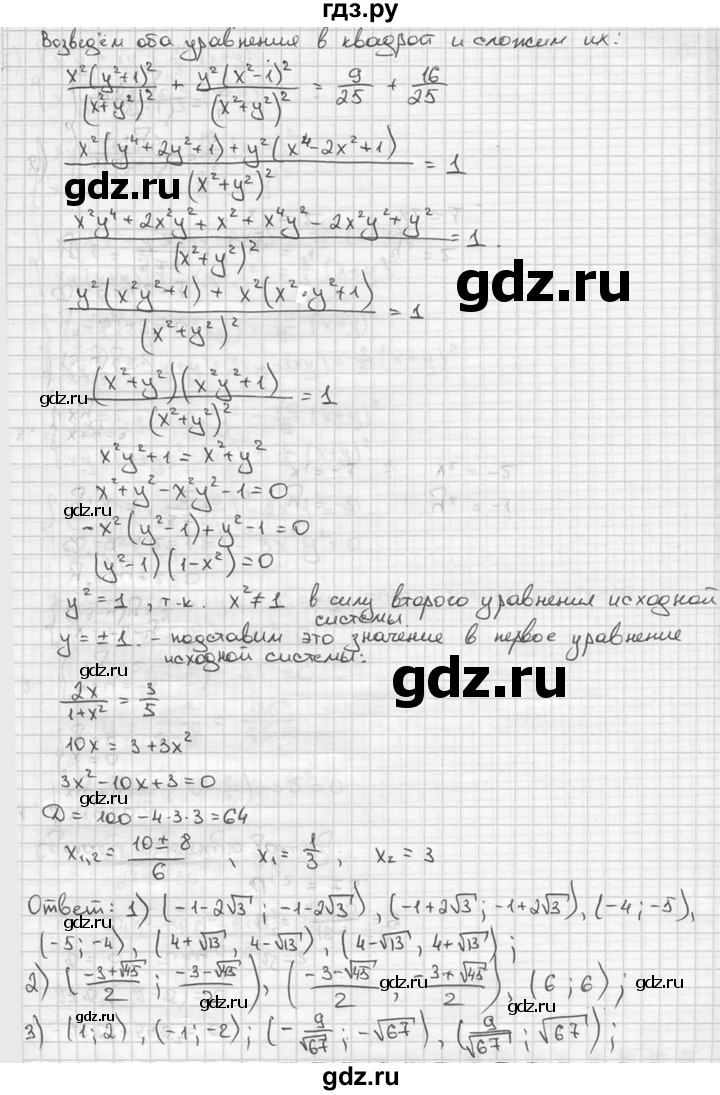 гдз.ру
Возведём оба уравнения в квадрат и сложим их:
x²(y²+1)²/(x²+y²)² + y²(x²-1)²/(x²+y²)² = 9/25 + 16/25
(x²(y⁴+2y²+1)+y²(x⁴-2x²+1))/(x²+y²)² = 1
gdz.ru
(x²y⁴+2x²y²+x²+x⁴y²-2x²y²+y²)/(x²+y²)² = 1.
gdz.ru
(y²(x²y²+1) + x²(x²·y²+1))/(x²+y²)² = 1
((x²+y²)(x²y²+1))/(x²+y²)² = 1
gdz.ru
x²y²+1 = x²+y²
x²+y²-x²y²-1=0
gdz.ru
-x²(y²-1)+y²-1=0
(y²-1)(1-x²)=0
y²=1, т.к. x²≠1 в силу второго уравнения исходной системы.
y=±1. - подставим это значение в первое уравнение исходной системы:
gdz.ru
gdz.ru
2x/(1+x²) = 3/5
10x = 3+3x²
3x²-10x+3=0
gdz.ru
D = 100-4·3·3=64
x₁,₂ = (10±8)/6, x₁ = 1/3, x₂ = 3
Ответ: 1) (-1-2√3; -1-2√3), (-1+2√3; -1+2√3), (-4; -5),
gdz.ru
(-5; -4), (4+√13, 4-√13), (4-√13, 4+√13);
2) ((-3+√45)/2; (-3-√45)/2), ((-3-√45)/2, (-3+√45)/2), (6; 6);
gdz.ru
gdz.ru
3) (1; 2), (-1; -2); (-9/√67; -√67), (9/√67; √67);
gdz.ru
gdz.ru
гдз.ру